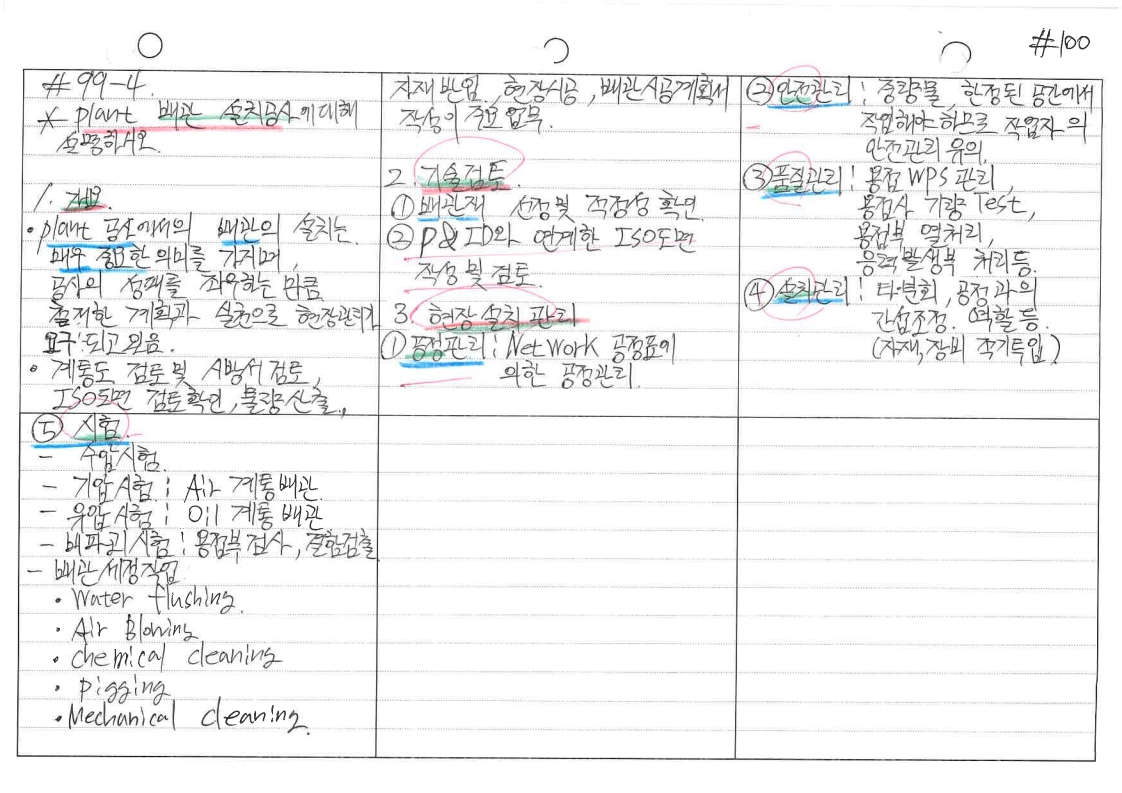 #100
# 99-4.
* plant 배관 설치공사에 대해
설명하시오.
1. 개요.
• plant 공사에서의 배관의 설치는
매우 중요한 의미를 가지며,
공사의 성패를 좌우하는 만큼
철저한 계획과 실천으로 현장관리가
요구되고 있음.
• 계통도 검토 및 시방서 검토,
ISO도면 검토확인, 물량산출,
자재 반입, 현장시공, 배관시공계획서
작성이 주요업무.
2. 기술검토.
① 배관재 선정 및 적정성 확인.
② P&ID와 연계한 ISO도면
작성 및 검토.
3. 현장 설치 관리
① 공정관리 : NetWork 공정표에
의한 공정관리.
② 안전관리 : 중량물, 한정된 공간에서
작업해야 하므로 작업자의
안전관리 유의.
③ 품질관리 : 용접 WPS 관리,
용접사 기량 Test,
용접부 열처리,
응력발생부 처리 등.
④ 설치관리 : 타분회, 공정과의
간섭조정. 역할 등.
(자재, 장비 적기투입)
⑤ 시험.
- 수압시험.
- 기압시험 : Air 계통배관.
- 유압시험 : Oil 계통 배관
- 비파괴시험 : 용접부 검사, 결함검출
- 배관세정작업
• Water flushing.
• Air Blowing
• chemical cleaning
• pigging
• Mechanical cleaning.